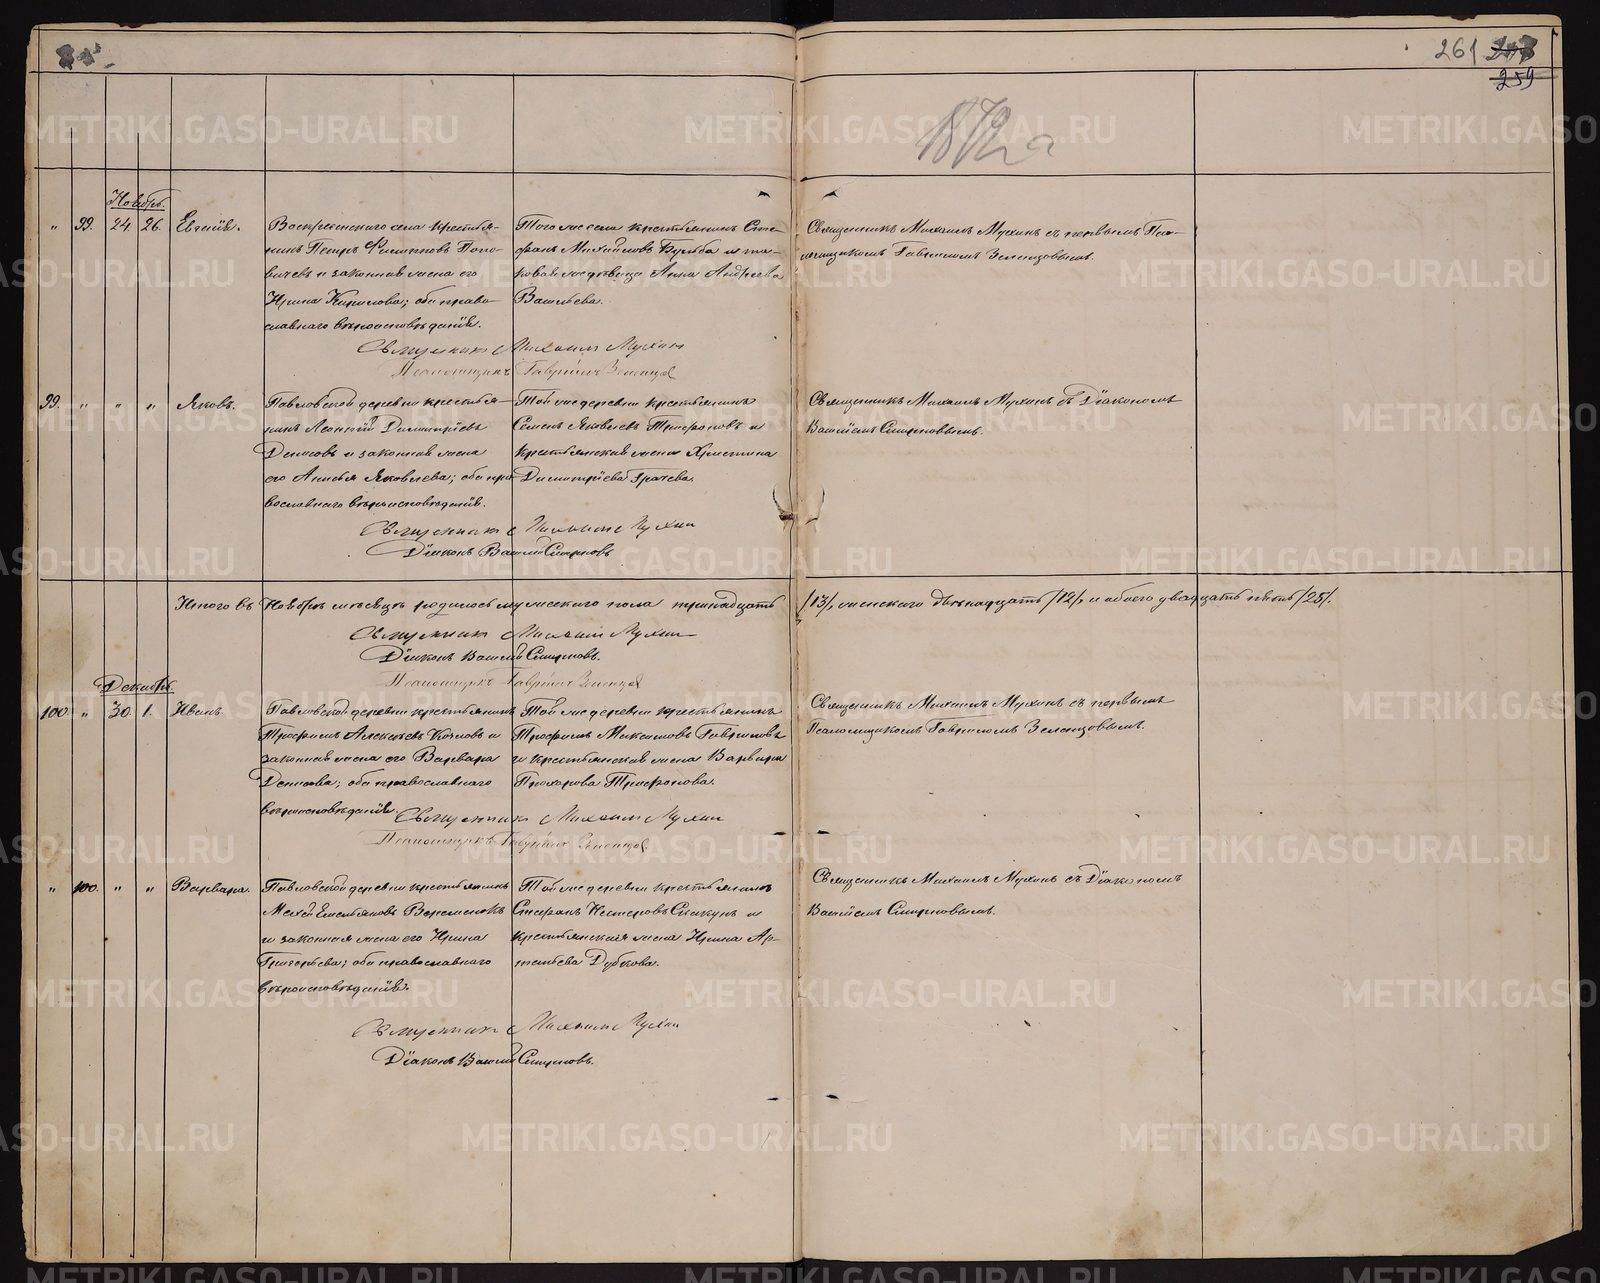 261
259
1872 а
Ноябрь.
" 99. 24. 26. Евгенія.
Воскресенскаго села крестья-
нинъ Петръ Филиповъ Попо-
вичевъ и законная жена его
Ирина Кирилова; оба право-
славнаго вѣроисповѣданія.
Того же села крестьянинъ Сте-
фанъ Михайловъ Бульба и та-
ковая же дѣвица Анна Андреева
Васильева.
Священникъ Михаилъ Мухинъ съ первымъ Пса-
ломщикомъ Гавріиломъ Зеленцовымъ.
Священникъ Михаилъ Мухинъ
Псаломщикъ Гавріилъ Зеленцов
99. " " " Яковъ.
Павловской деревни крестья-
нинъ Леонтій Димитріевъ
Денисовъ и законная жена
его Анисья Яковлева; оба пра-
вославнаго вѣроисповѣданія.
Той же деревни крестьянинъ
Семенъ Яковлевъ Трифоновъ и
крестьянская жена Христина
Димитріева Грачева.
Священникъ Михаилъ Мухинъ съ Діакономъ
Василіемъ Смирновымъ.
Священникъ Михаилъ Мухин
Діаконъ Василій Смирновъ
Итого въ Ноябрѣ мѣсяцѣ родилось мужескаго пола тринадцать /13/, женскаго двѣнадцать /12/, и обоего двадцать пять /25/.
Священникъ Михаилъ Мухин
Діаконъ Василій Смирновъ.
Псаломщикъ Гавріилъ Зеленцов
Декабрь.
100. " 30. 1. Иванъ.
Павловской деревни крестьянинъ
Трофимъ Алексѣевъ Козловъ и
законная жена его Варвара
Денисова; оба православнаго
вѣроисповѣданія.
Той же деревни крестьянинъ
Трофимъ Максимовъ Гавриловъ
и крестьянская жена Варвара
Прохорова Трифонова.
Священникъ Михаилъ Мухинъ съ первымъ
Псаломщикомъ Гавріиломъ Зеленцовымъ.
Священникъ Михаилъ Мухин
Псаломщикъ Гавріилъ Зеленцов
" 100. " " Варвара.
Павловской деревни крестьянинъ
Мохей Емельяновъ Веремеюкъ
и законная жена его Ирина
Григорьева; оба православнаго
вѣроисповѣданія.
Той же деревни крестьянинъ
Стефанъ Нестеровъ Скакунъ и
крестьянская жена Ирина Ар-
темьева Дубкова.
Священникъ Михаилъ Мухинъ съ Діакономъ
Василіемъ Смирновымъ.
Священникъ Михаилъ Мухин
Діаконъ Василій Смирновъ.
METRIKI.GASO-URAL.RU